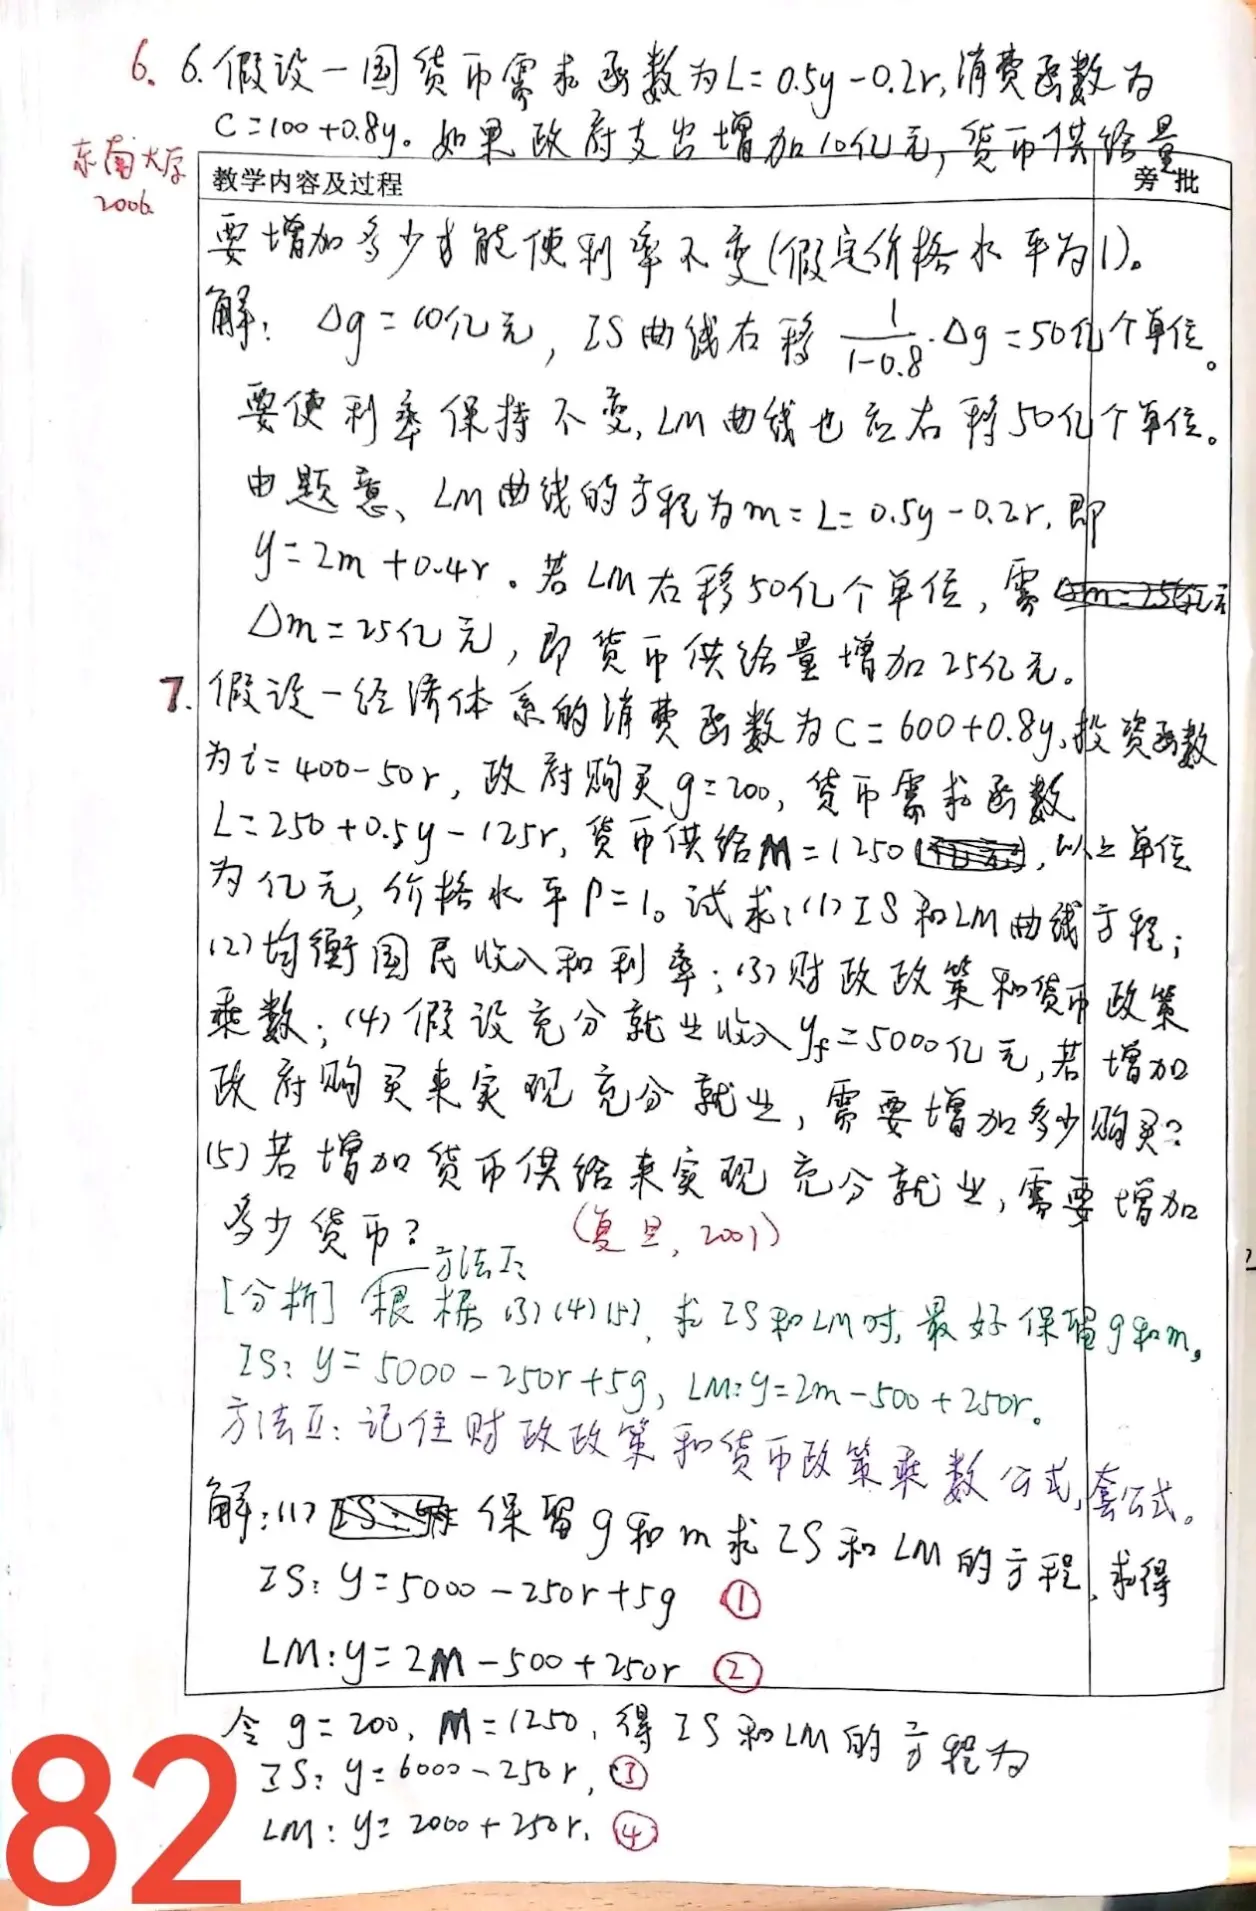 6. 6. 假设一国货币需求函数为L=0.5y-0.2r,消费函数为
C=100+0.8y。如果政府支出增加10亿元,货币供给量
东南大学
2006.
教学内容及过程 旁 批
要增加多少才能使利率不变(假定价格水平为1)。
解: Δg=10亿元, IS曲线右移 1/(1-0.8)·Δg=50亿个单位。
要使利率保持不变,LM曲线也应右移50亿个单位。
由题意、LM曲线的方程为m=L=0.5y-0.2r,即
y=2m+0.4r。若LM右移50亿个单位,需
Δm=25亿元,即货币供给量增加25亿元。
7. 假设一经济体系的消费函数为C=600+0.8y,投资函数
为i=400-50r,政府购买g=200,货币需求函数
L=250+0.5y-125r,货币供给m=1250,以上单位
为亿元,价格水平P=1。试求:(1)IS和LM曲线方程;
(2)均衡国民收入和利率;(3)财政政策和货币政策
乘数;(4)假设充分就业收入yf=5000亿元,若增加
政府购买来实现充分就业,需要增加多少购买?
(5)若增加货币供给来实现充分就业,需要增加
多少货币? (复旦,2001)
方法I:
[分析] 根据(3)(4)(5),求IS和LM时,最好保留g和m。
IS: y=5000-250r+5g, LM:y=2m-500+250r。
方法II:记住财政政策和货币政策乘数公式,套公式。
解:(1) 保留g和m求IS和LM的方程,求得
IS: y=5000-250r+5g ①
LM:y=2m-500+250r ②
令g=200, m=1250,得IS和LM的方程为
IS: y=6000-250r, ③
LM: y=2000+250r. ④
82